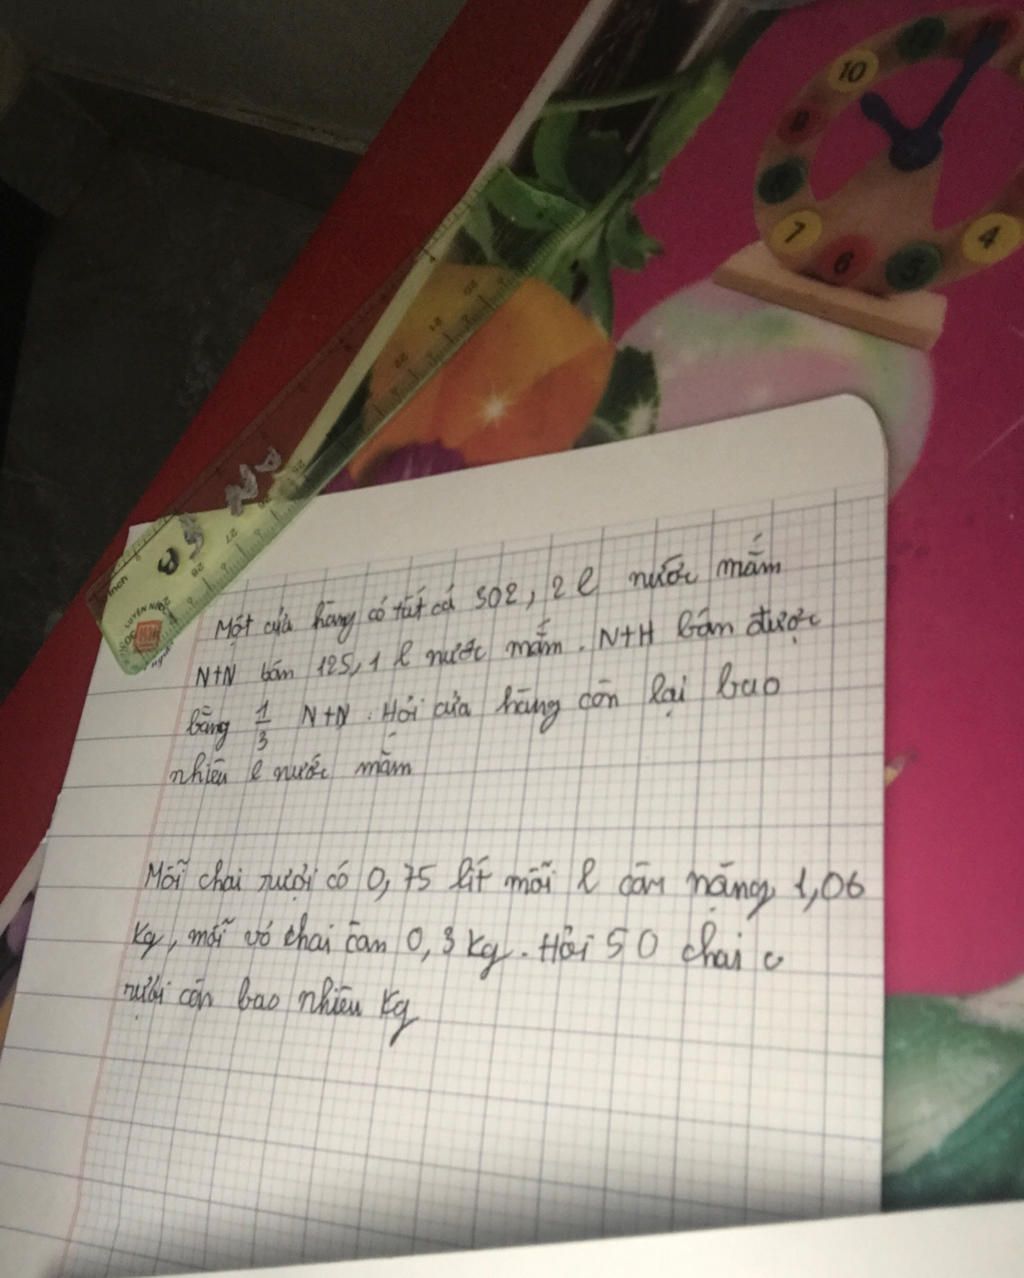 10
7
6
5
4
Một cửa hàng có tất cả 502, 2 l nước mắm
N+N bán 125, 1 l nước mắm. N+H bán được
bằng 1/3 N+N. Hỏi cửa hàng còn lại bao
nhiêu l nước mắm
Mỗi chai rượi có 0, 75 lít mỗi l cân nặng 1,06
Kg, mỗi vỏ chai cân 0, 3 kg. Hỏi 50 chai c
rượi cân bao nhiêu Kg
inch
27
28